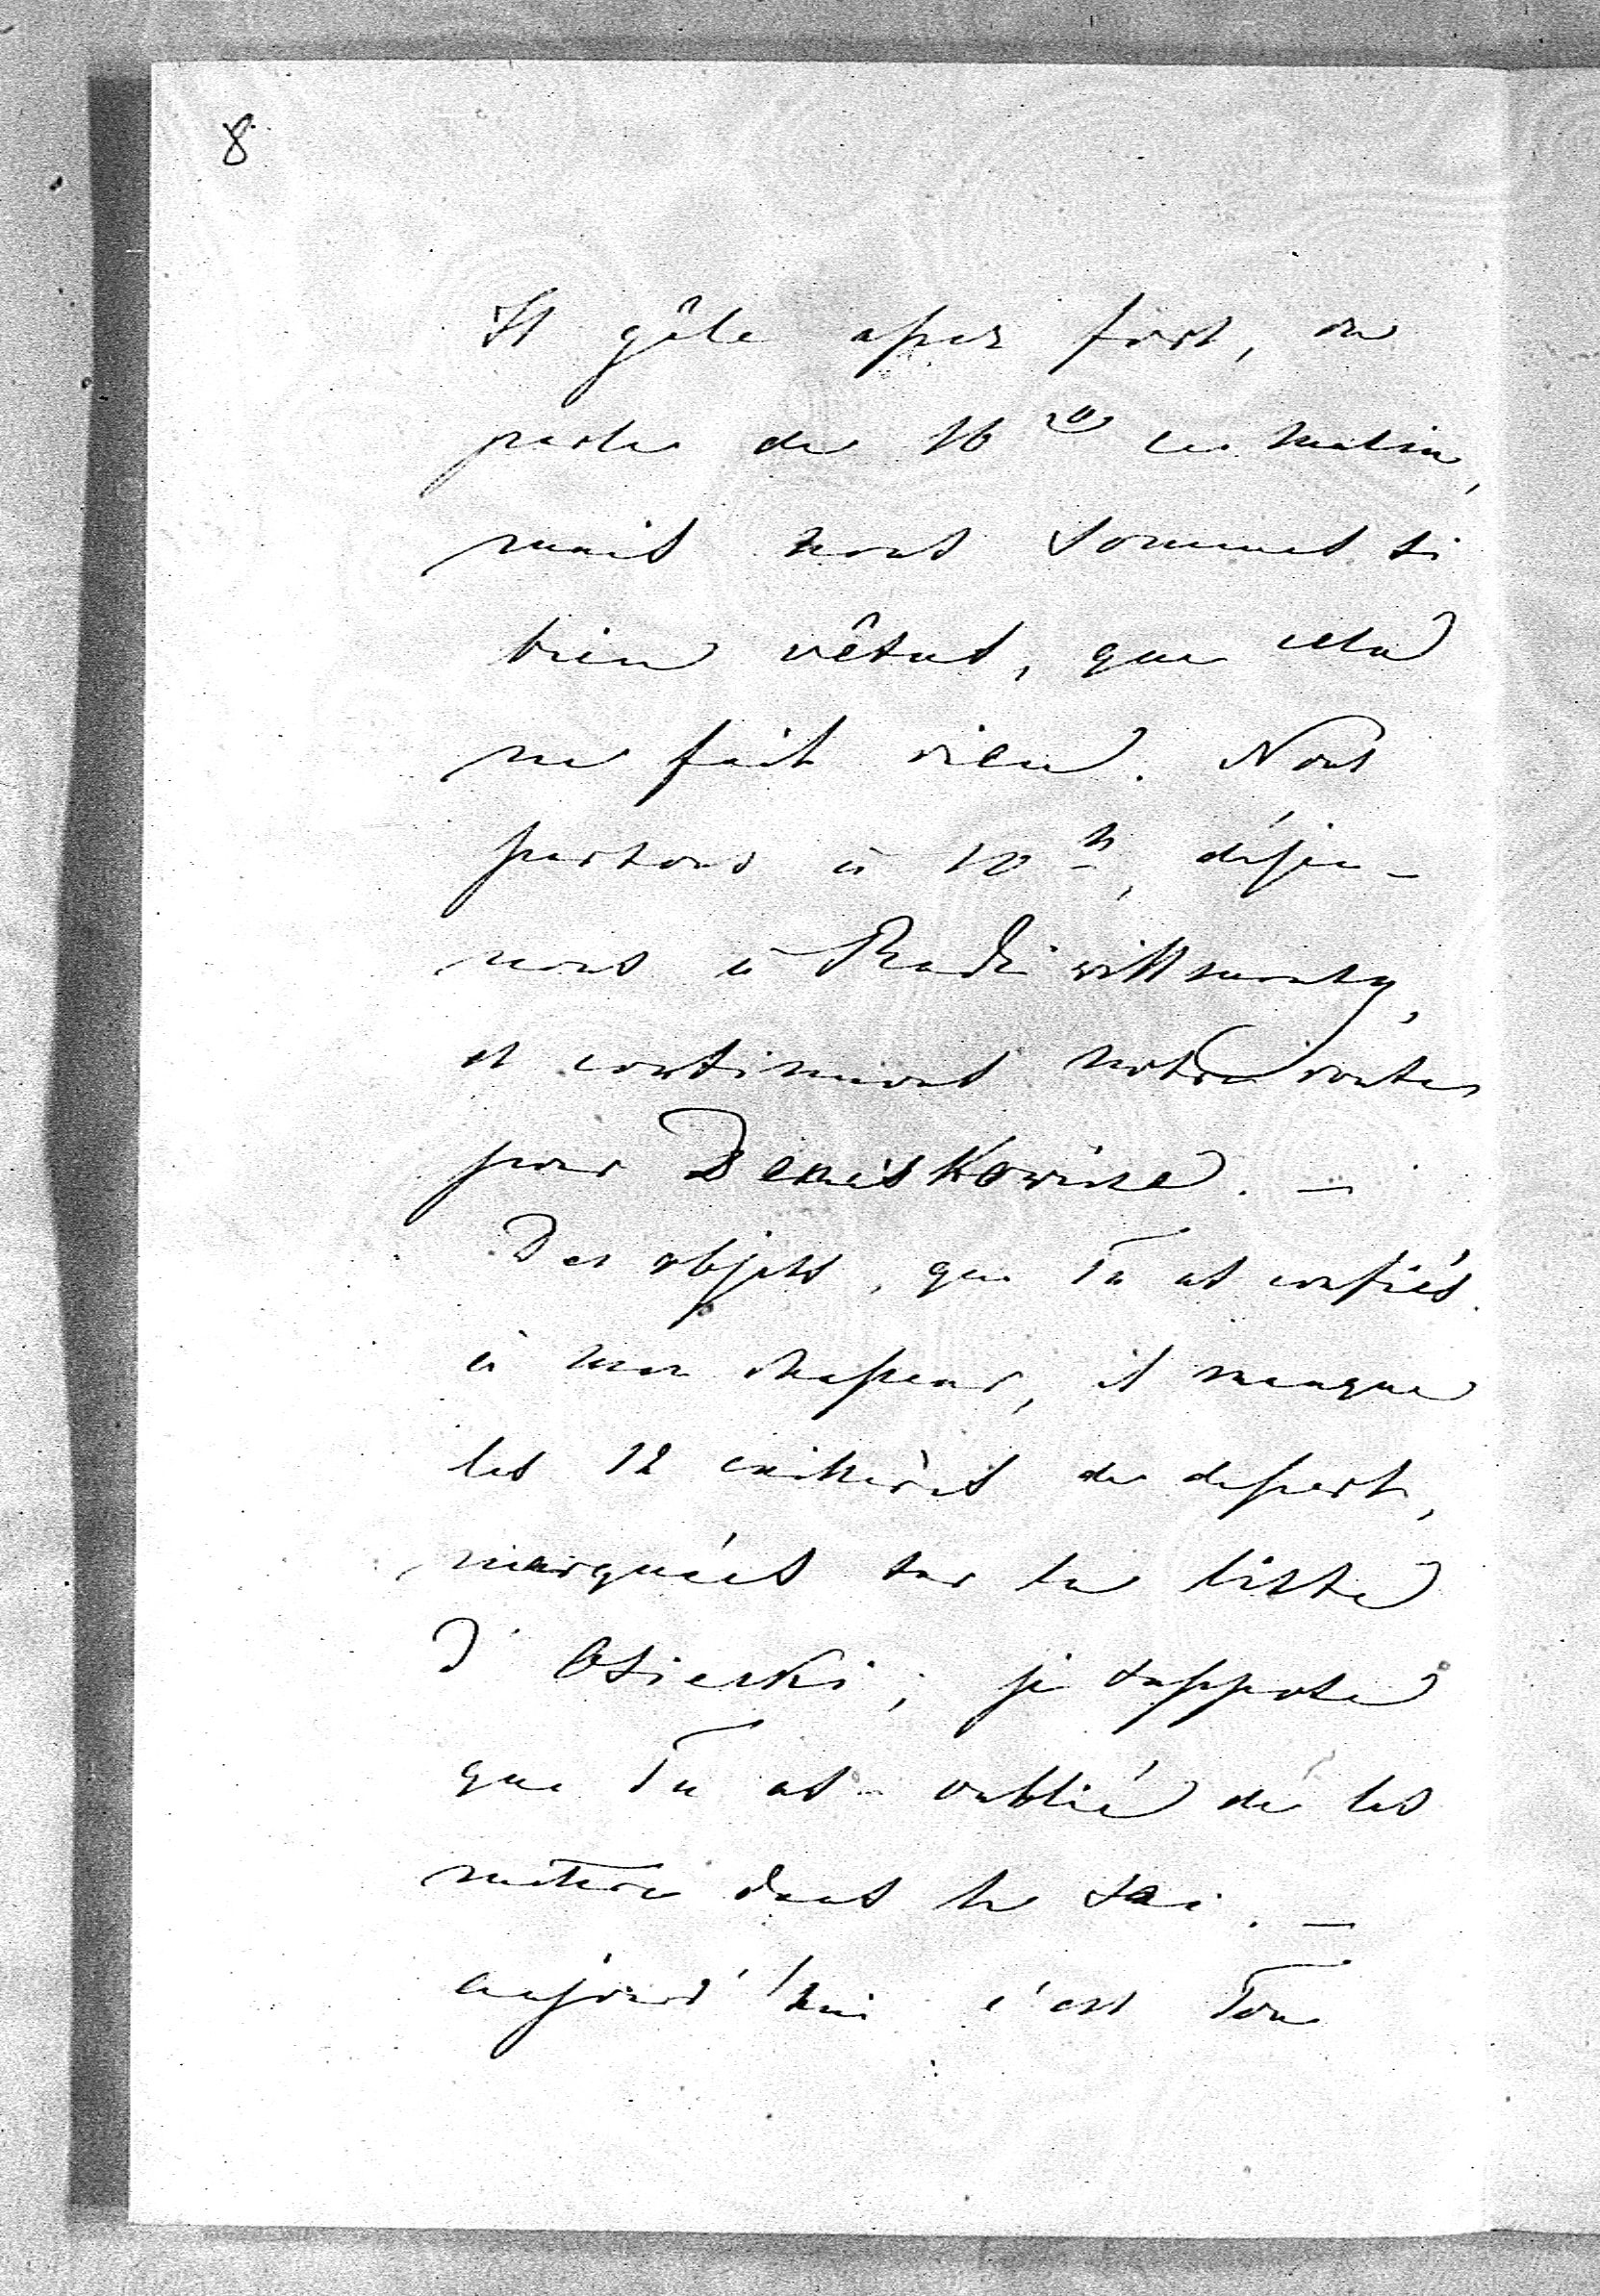 8
Il gêle assez fort, on
parle de 16° ce matin,
mais nous sommes si
bien vêtus, que cela
ne fait rien. Nous
partons à 10 h, déjeu-
nons à Radziwillmonty,
et continuons notre route
pour Deniskowicze. —
Des objets, que Tu as confiés
à mon chasseur, il manque
les 12 cuillères de dessert,
marquées sur la liste
d'Osierki; je suppose
que Tu as oublié de les
mettre dans le sac. —
aujourd'hui c'est Ton